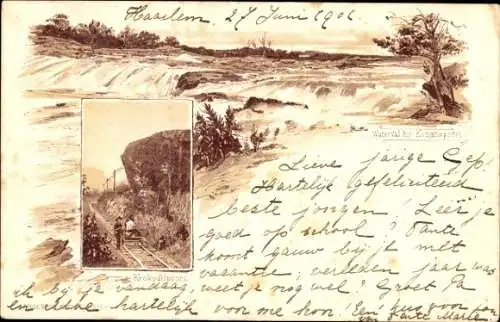 Haarlem 27 Juni 1901
Waterval bij Komatiepoort
Krokodilpoort
Lieve jarige Gep,
Hartelijk gefeliciteerd
beste jongen! Leer je
goed op school? Tante
komt gauw bij je met
vacantie; verleden jaar was
ik bij je vandaag, weet je nog wel? Groet Pa
en hartelijk voor me hoor. Een kus voor jou
van Tante Marie.